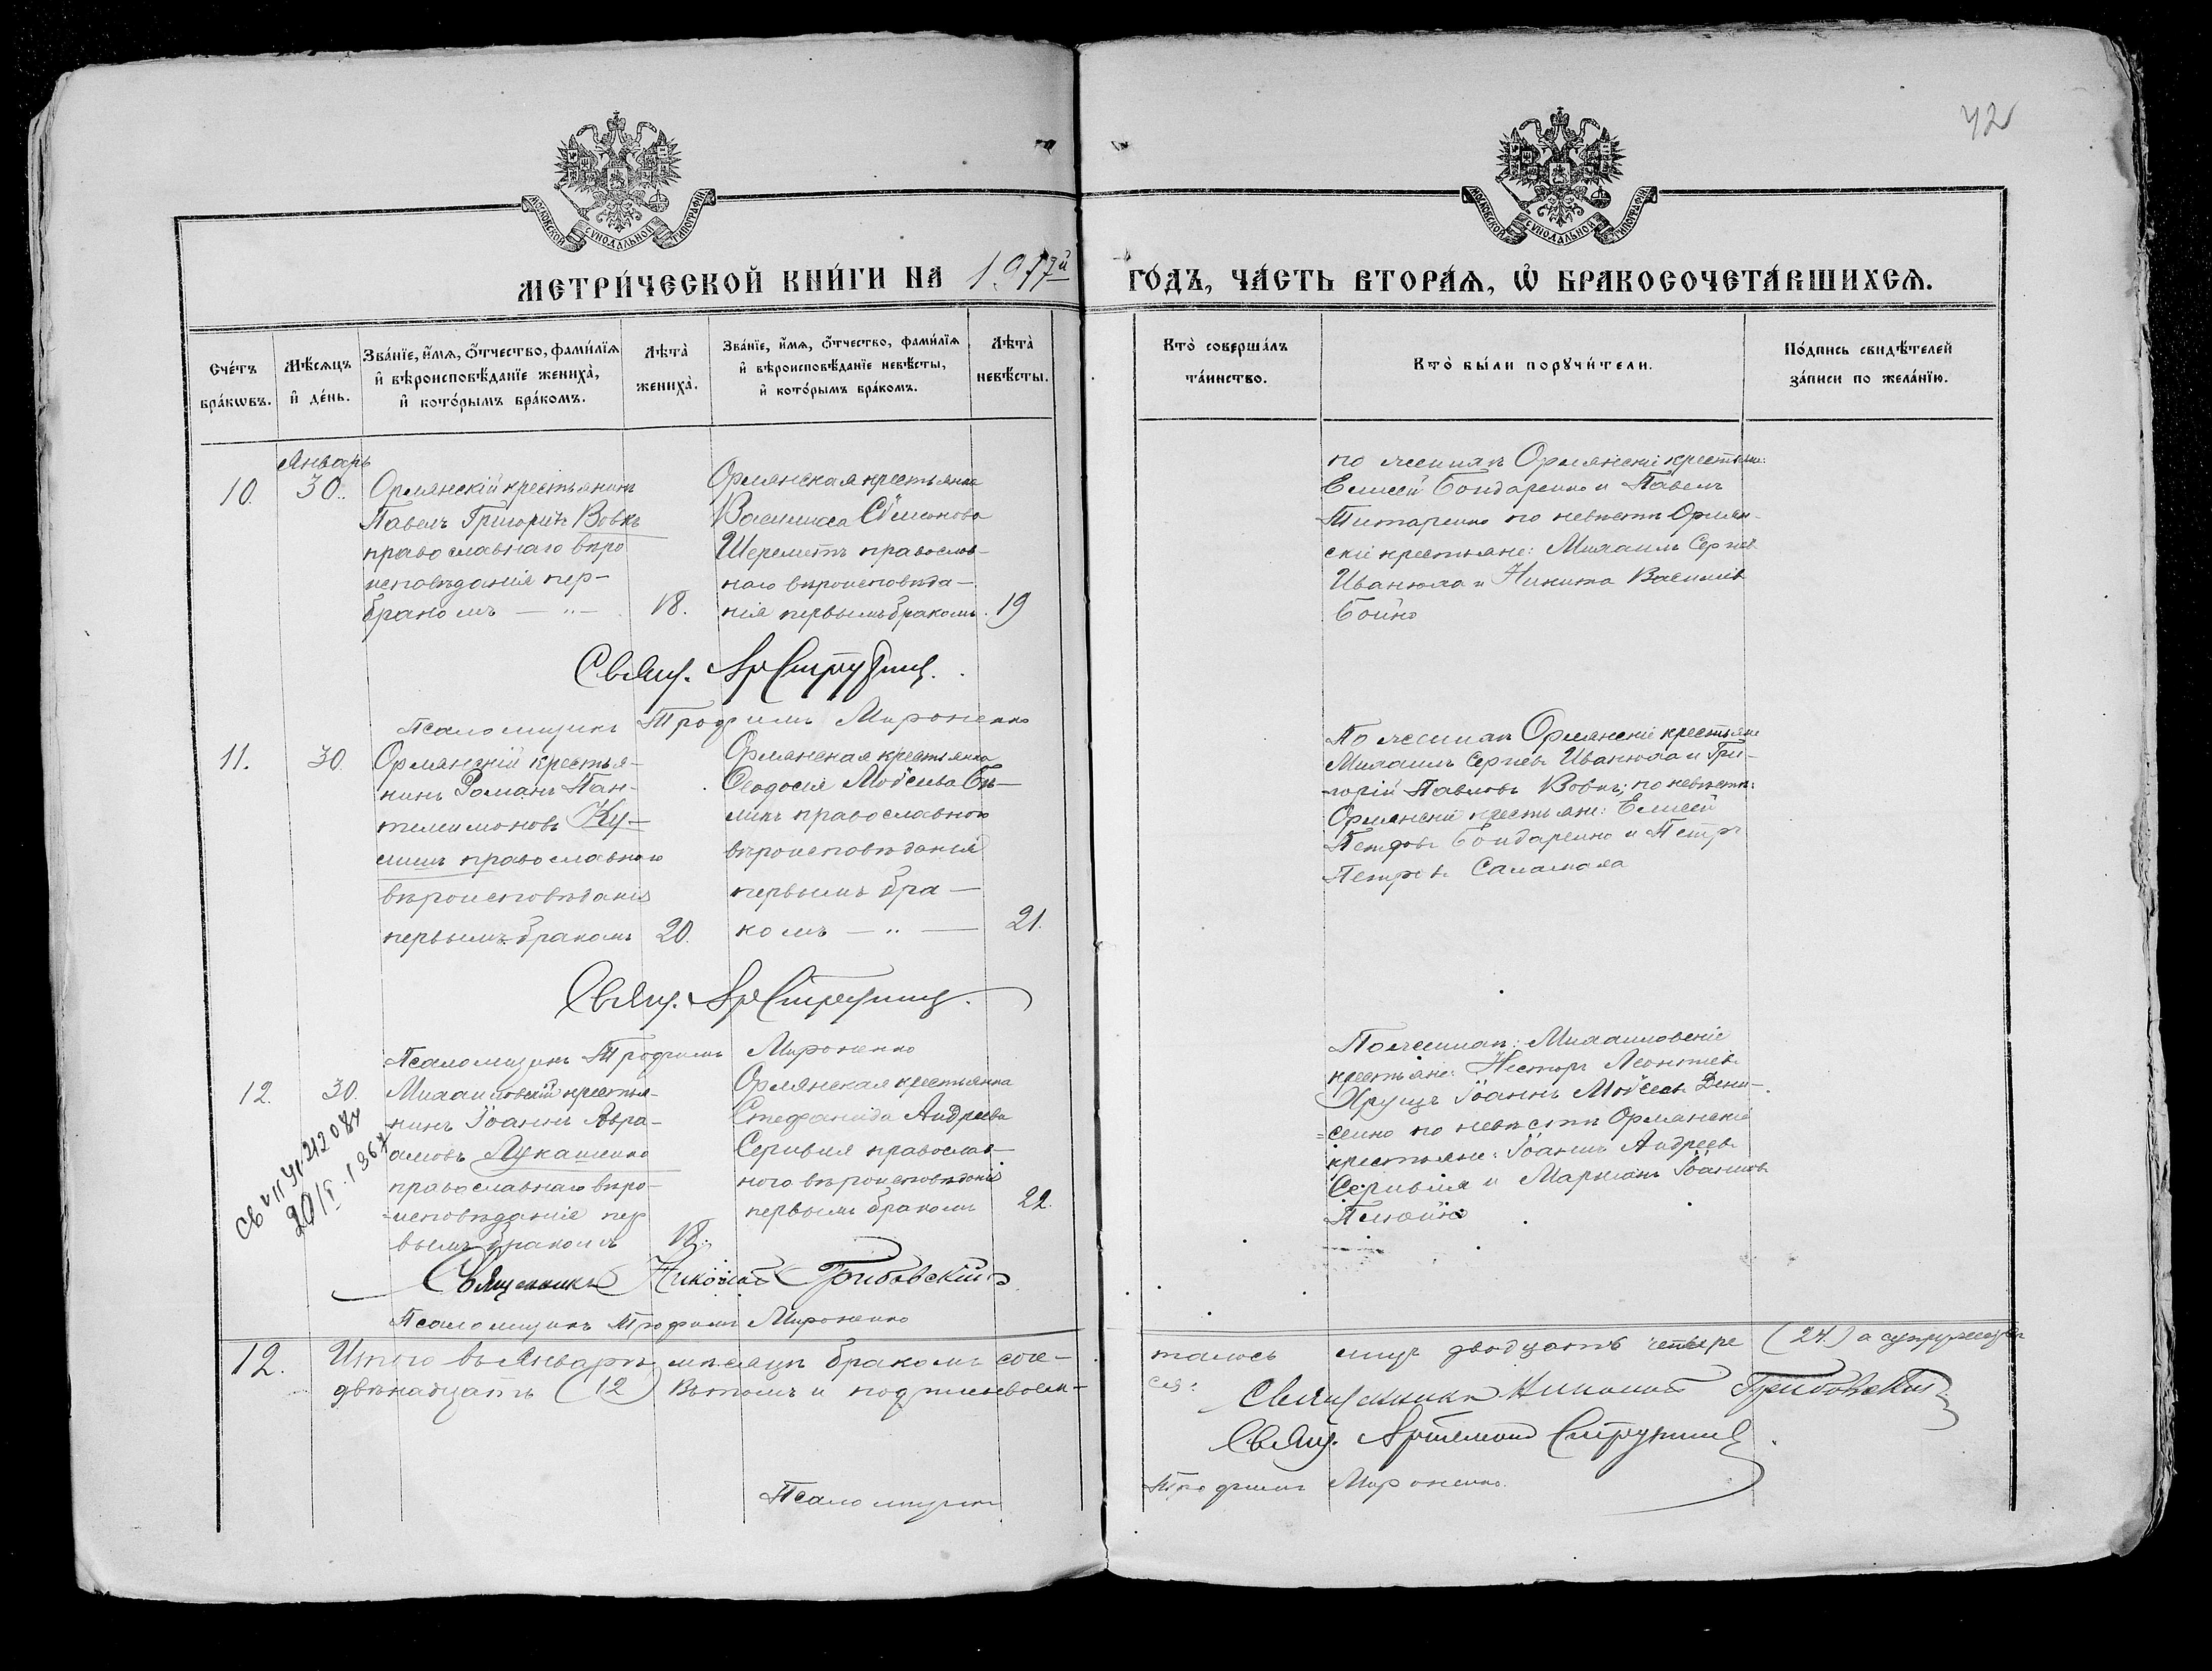 42
МОСКОВСКОЙ СУНОДАЛЬНОЙ ТИПОГРАФІИ
МОСКОВСКОЙ СУНОДАЛЬНОЙ ТИПОГРАФІИ
МЕТРИ́ЧЕСКОЙ КНИ́ГИ НА 1917й ГО́ДЪ, ЧА́СТЬ ВТОРА́Ѧ, Ѽ БРАКОСОЧЕТА́ВШИХСѦ.
Сче́тъ бра́кѡвъ.
Мѣ́сѧцъ и҆ де́нь.
Зва́нїе, и҆́мѧ, ѻ҆́тчество, фами́лїѧ и҆ вѣроисповѣ́данїе жениха̀, и҆ кото́рымъ бра́комъ.
Лѣта̀ жениха̀.
Зва́нїе, и҆́мѧ, ѻ҆́тчество, фами́лїѧ и҆ вѣроисповѣ́данїе невѣ́сты, и҆ кото́рымъ бра́комъ.
Лѣта̀ невѣ́сты.
Кто̀ соверша́лъ та́инство.
Кто̀ бы́ли порꙋчи́тели.
По́дпись свидѣ́телей за́писи по жела́нїю.
Январь
10. 30.
Ормянскій крестьянинъ
Павелъ Григоріевъ Вовкъ
православнаго вѣро
исповѣданія пер-
бракомъ — „ —
18.
Ормянская крестьянка
Василиса Сѵмеонова
Шереметъ православ-
наго вѣроисповѣда-
нія первымъ бракомъ.
19
по женихѣ Ормянскіе крестьяне:
Елисей Бондаренко и Павелъ
Титаренко по невѣстѣ Ормян-
скіе крестьяне: Михаилъ Сергіевъ
Иванюха и Никита Василіевъ
Бойко
Свящ. Ар Струпинц.
Псаломщикъ Трофимъ Мироненко
11. 30.
Ормянскій крестья-
нинъ Романъ Пан-
телимоновъ Ку-
лишъ православнаго
вѣроисповѣданія
первымъ бракомъ
20.
Ормянская крестьянка
Ѳеодосія Моѵсеева Бѣ-
ликъ православнаго
вѣроисповѣданія
первымъ бра-
комъ — „ —
21.
По женихѣ Ормянскіе крестьяне
Михаилъ Сергіевъ Иванюха и Гри-
горій Павловъ Вовкъ; по невѣстѣ:
Ормянскіе крестьяне: Елисей
Петровъ Бондаренко и Петръ
Петровъ Саламаха
Свящ. Ар Струпинц.
Псаломщикъ Трофимъ Мироненко
12. 30.
Михаиловскій крестья-
нинъ Іоаннъ Авра-
амовъ Лукашенко
православнаго вѣро-
исповѣданія пер
вымъ бракомъ
18.
Ормянская крестьянка
Стефанида Андреева
Сергивня православ-
наго вѣроисповѣданія
первымъ бракомъ
22.
По женихѣ: Михаиловскіе
крестьяне: Несторъ Леонтіевъ
Хрущъ Іоаннъ Моѵсеевъ Дени-
сенко по невѣстѣ Ормянскіе
крестьяне: Іоаннъ Андреевъ
и Іоанновъ
Священникъ Николай Грибовскій
Псаломщикъ Трофимъ Мироненко
12. Итого въ Январѣ мѣсяцѣ бракомъ соче- талось лицъ двадцать четыре (24) а супружествъ
двѣнадцать (12) Въ томъ и подписываем- ся: Священникъ Николай Грибовскій
Свящ. Артемонъ Струпинц
Псаломщикъ Трофимъ Мироненко.